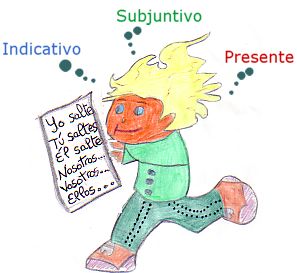 Subjuntivo
Indicativo
Presente
Yo salte
Tú saltes
Él salte
Nosotros...
Vosotros...
Ellos...